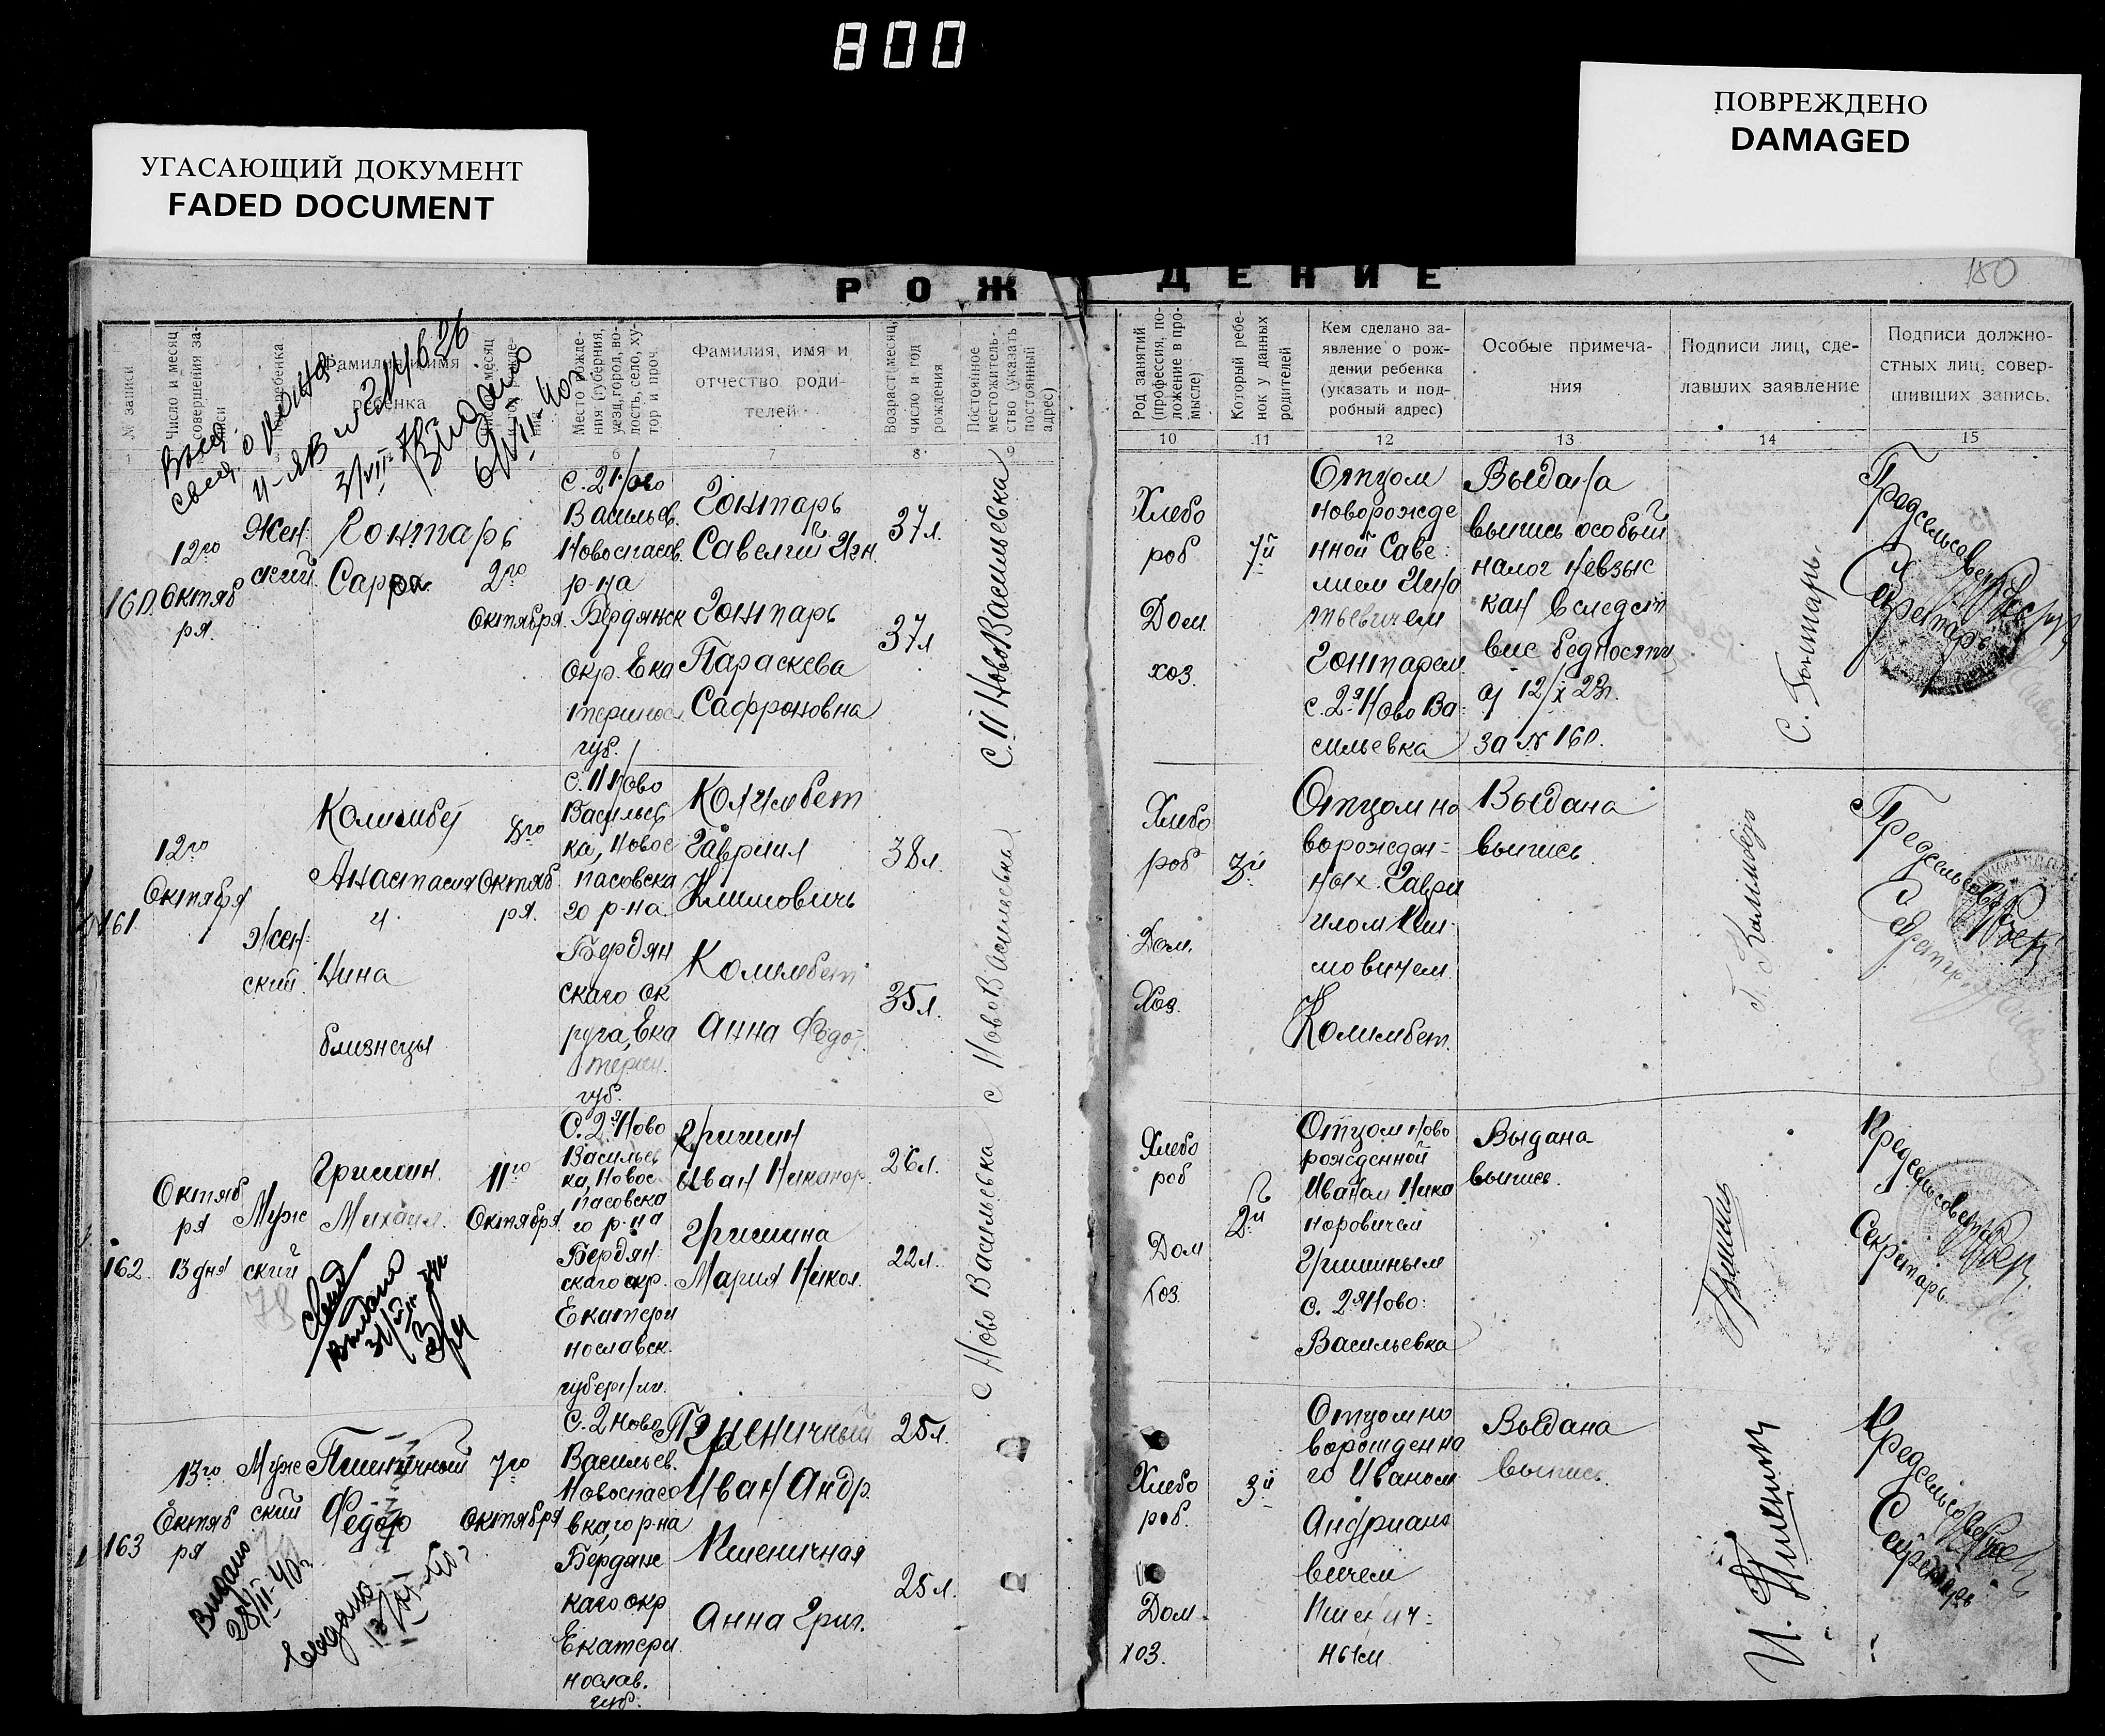 800
УГАСАЮЩИЙ ДОКУМЕНТ
FADED DOCUMENT
ПОВРЕЖДЕНО
DAMAGED
150
РОЖДЕНИЕ
№ записи
Число и месяц совершения за-
ребенка
Фамилия и имя
ребенка
Место рожде-
ния (губерния,
уезд, город, во-
лость, село, ху-
тор и проч.
Фамилия, имя и
отчество роди-
телей
Возраст (месяц,
число и год
рождения
Постоянное
местожитель-
ство (указать
постоянный
адрес)
Род занятий
(профессия, по-
ложение в про-
мысле)
Который ребе-
нок у данных
родителей
Кем сделано за-
явление о рож-
дении ребенка
(указать и под-
робный адрес)
Особые примеча-
ния
Подписи лиц, сде-
лавших заявление
Подписи должно-
стных лиц, совер-
шивших запись.
6 7 8 9 10 11 12 13 14 15
160.
12го
Октяб
ря.
Жен
ский.
Гонтарь
Сарра
2го
Октября.
Васильев.
Новоспасов.
р-на
Бердянск
окр. Ека
губ.
Гонтарь
Савелий Игн.
Гонтарь
Параскева
Сафроновна
37л.
37л
С. II НовоВасильевка
Хлебо
роб
Дом.
хоз.
7й
Отцом
новорожде
нной Саве
лием Игна
тьевичем
Гонтарем
с. 2я Ново Ва
сильевка
Выдана
выпись особый
налог невзыс
кан вследст
вие бедности
12/X 23г.
за № 160.
С. Гонтарь.
Предсельсовета
Секретарь
161
12го
Октября
Жен
ский.
Колимбет
Анастасия
и
Нина
близнецы
8го
Октяб
ря.
С. II Ново
Васильев
ка, Новос
пасовска
го р-на
Бердян
скаго ок
руга, Ека
терин.
губ.
Колимбет
Гавриил
Климовичь
Колимбет
Анна Федот.
38л.
35л.
с НовоВасильевка
Хлебо
роб
Дом.
Хоз.
3й
Отцом но
ворожден-
ных Гаври
илом Кли-
мовичем
Колимбет.
Выдана
выпись.
Г. Колимбет
Предсельсовета
Секретарь
162.
Октяб
ря
13 дня
Муж
ский
78
Гришин.
Михаил.
11го
Октября
С. 2я Ново
Васильев
ка, Новос
пасовска
го р-на
Бердян
скаго окр.
Екатери
нославск.
губернии.
Гришин
Иван Никанор.
Гришина
Мария Никол.
26л.
22л.
с Ново Васильевка
Хлебо
роб
Дом
хоз.
2й
Отцом ново
рожденной
Иваном Ника
норовичем
Гришиным
с. 2я Ново
Васильевка
Выдана
выпись.
Гришин
Предсельсовета
Секретарь
163
13го
Октяб
ря
Муж
ский
Пшеничный
Федор
7го
Октября
Видано
28/II-40г
С. 2 Ново
Васильев.
Новоспасо
вкаго р-на
Бердянс
каго окр
Екатери
нослав.
губ.
Пшеничный
Иван Андр.
Пшеничная
Анна Григ.
25л.
25л.
Хлебо
роб.
Дом.
хоз.
3й
Отцом но
ворожденна
го Иваном
Андриано
вичем
Пшенич-
ным
Выдана
выпись
И. Пшенич
Предсельсовета
Секретарь